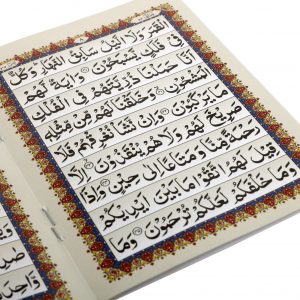 الْقَمَرَ وَلَا الَّيْلُ سَابِقُ النَّهَارِ وَكُلٌّ
فِى فَلَكٍ يَسْبَحُونَ وَاٰيَةٌ لَهُمْ
اَنَّا حَمَلْنَا ذُرِّيَّتَهُمْ فِى الْفُلْكِ
الْمَشْحُونِ وَخَلَقْنَا لَهُمْ مِنْ مِثْلِهِ
مَا يَرْكَبُونَ وَاِنْ نَشَأْ نُغْرِقْهُمْ فَلَا
صَرِيخَ لَهُمْ وَلَا هُمْ يُنْقَذُونَ اِلَّا
رَحْمَةً مِنَّا وَمَتَاعًا اِلٰى حِينٍ وَاِذَا
قِيلَ لَهُمُ اتَّقُوا مَا بَيْنَ اَيْدِيكُمْ
وَمَا خَلْفَكُمْ لَعَلَّكُمْ تُرْحَمُونَ وَمَا